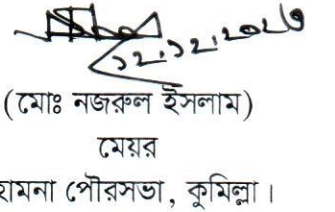 ১২.১২.২০২৩
(মোঃ নজরুল ইসলাম)
মেয়র
হোমনা পৌরসভা, কুমিল্লা।